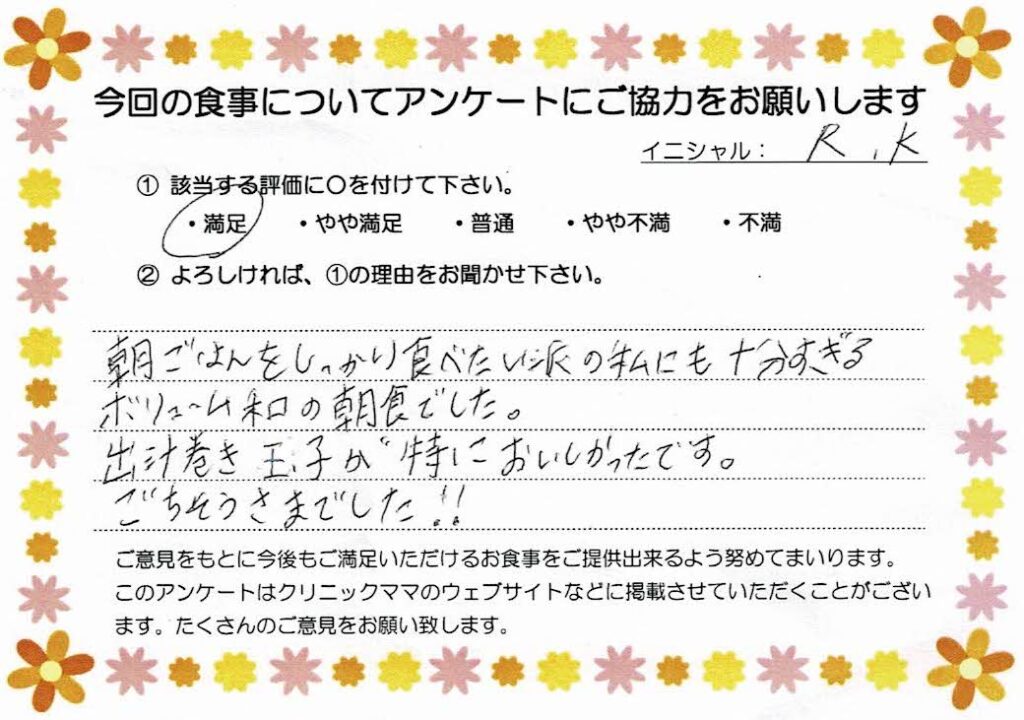 今回の食事についてアンケートにご協力をお願いします
イニシャル： R.K
① 該当する評価に〇を付けて下さい。
・満足 ・やや満足 ・普通 ・やや不満 ・不満
② よろしければ、①の理由をお聞かせ下さい。
朝ごはんをしっかり食べたい派の私にも十分すぎる
ボリューム和の朝食でした。
出汁巻き玉子が特においしかったです。
ごちそうさまでした!!
ご意見をもとに今後もご満足いただけるお食事をご提供出来るよう努めてまいります。
このアンケートはクリニックママのウェブサイトなどに掲載させていただくことがござい
ます。たくさんのご意見をお願い致します。